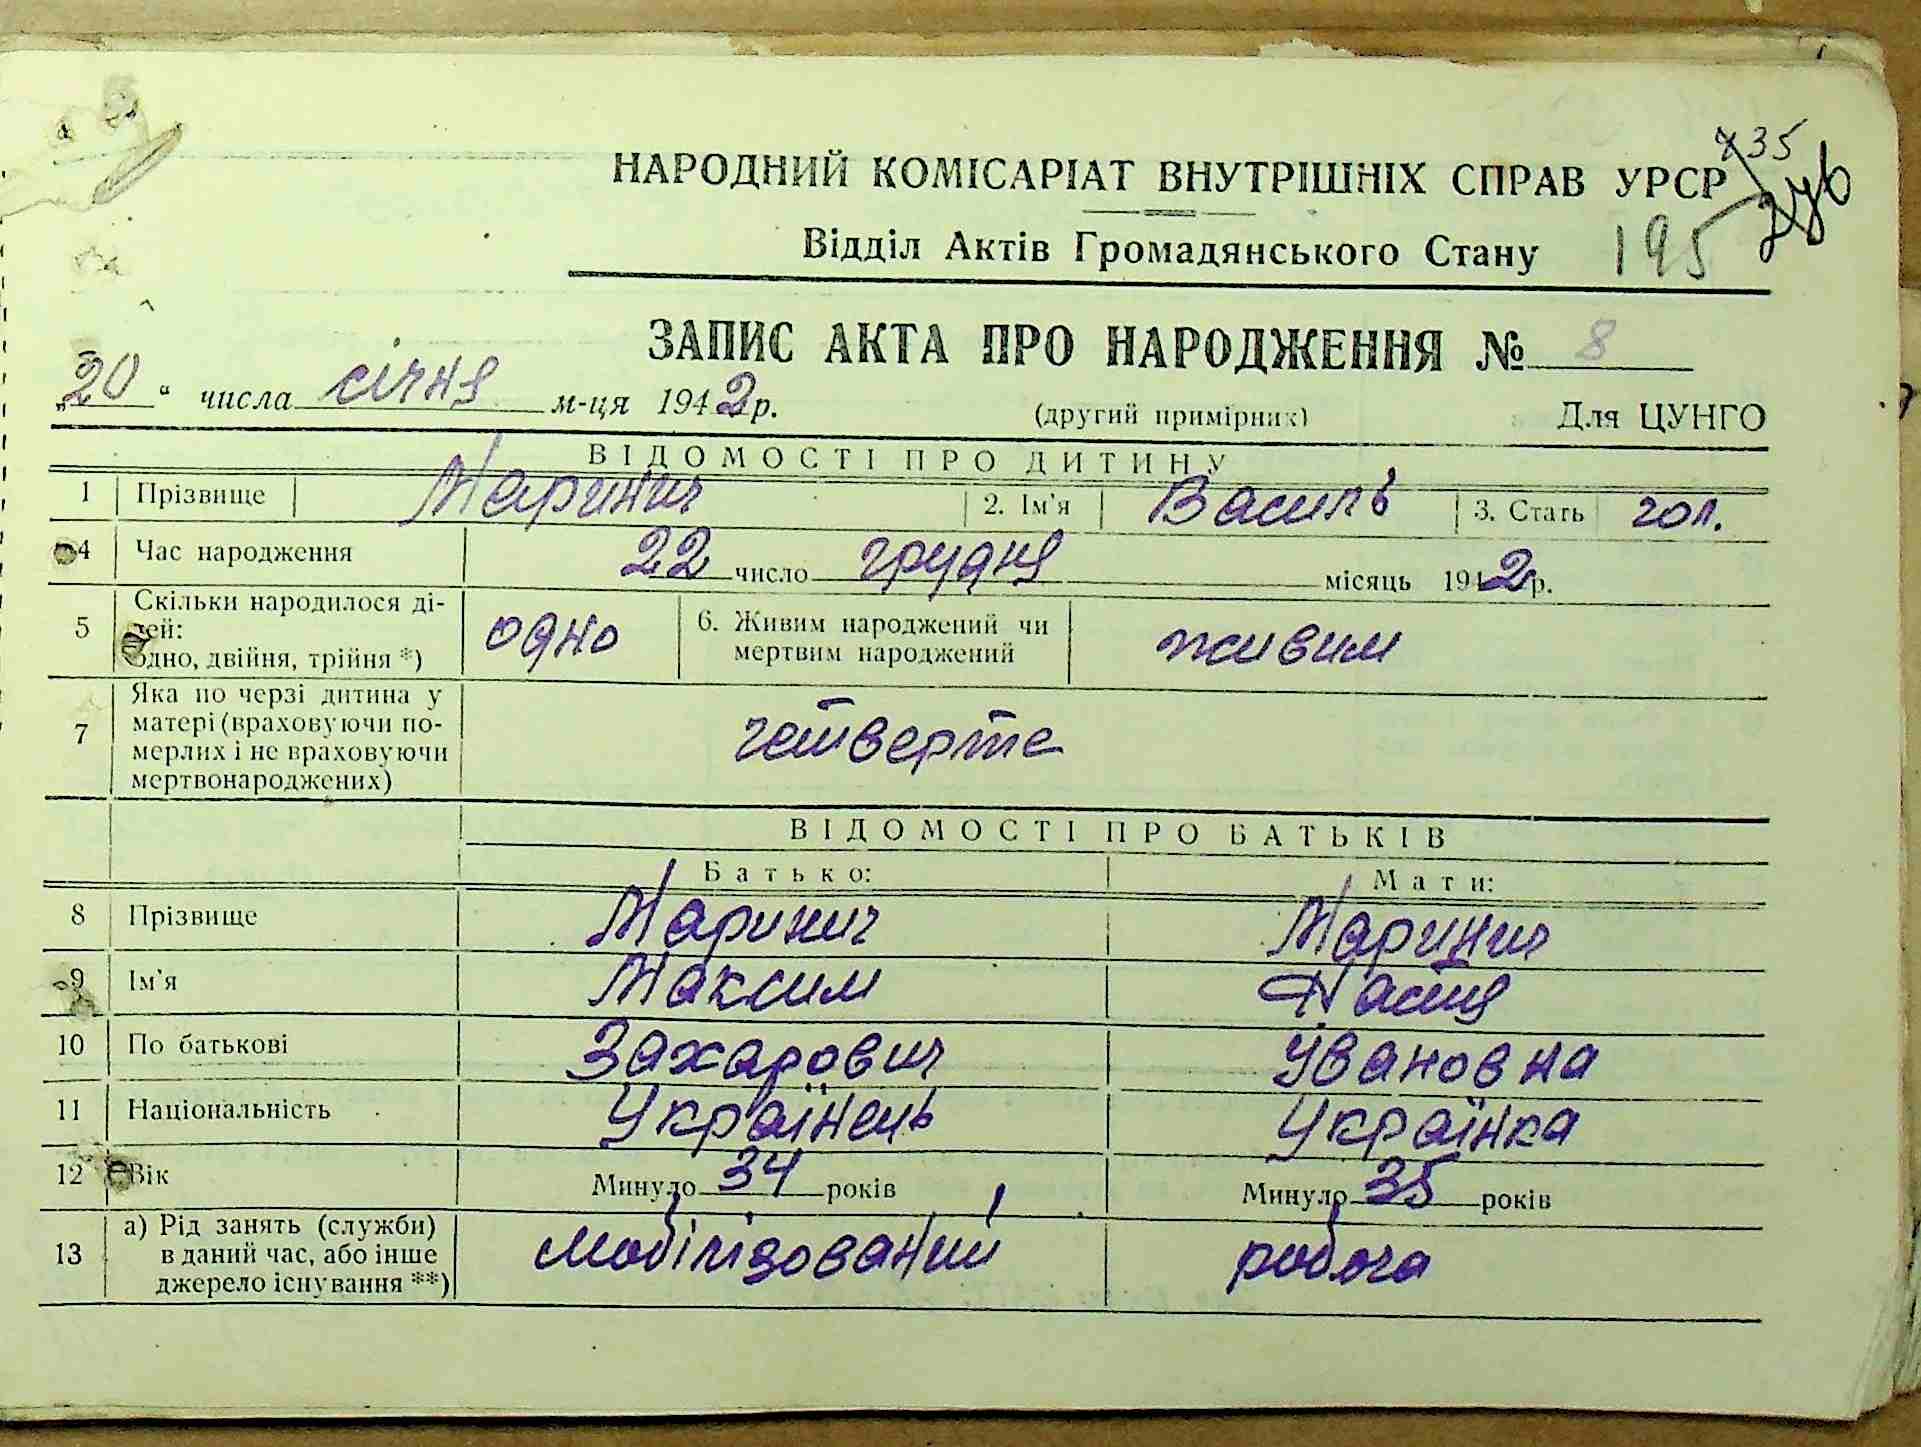 435
246
НАРОДНИЙ КОМІСАРІАТ ВНУТРІШНІХ СПРАВ УРСР
Відділ Актів Громадянського Стану 195
ЗАПИС АКТА ПРО НАРОДЖЕННЯ № 8
„20“ числа січня м-ця 1942 р. (другий примірник) Для ЦУНГО
ВІДОМОСТІ ПРО ДИТИНУ
1 Прізвище Маринич 2. Ім'я Василь 3. Стать чол.
4 Час народження 22 число грудня місяць 1942 р.
5 Скільки народилося ді-
тей:
одно, двійня, трійня *) одно 6. Живим народжений чи
мертвим народжений живим
7 Яка по черзі дитина у
матері (враховуючи по-
мерлих і не враховуючи
мертвонароджених) четверте
ВІДОМОСТІ ПРО БАТЬКІВ
Батько: Мати:
8 Прізвище Маринич Маринич
9 Ім'я Максим
10 По батькові Захарович Ивановна
11 Національність Українець Українка
12 Вік Минуло 34 років Минуло 35 років
13 а) Рід занять (служби)
в даний час, або інше
джерело існування **) мобілізований робоча